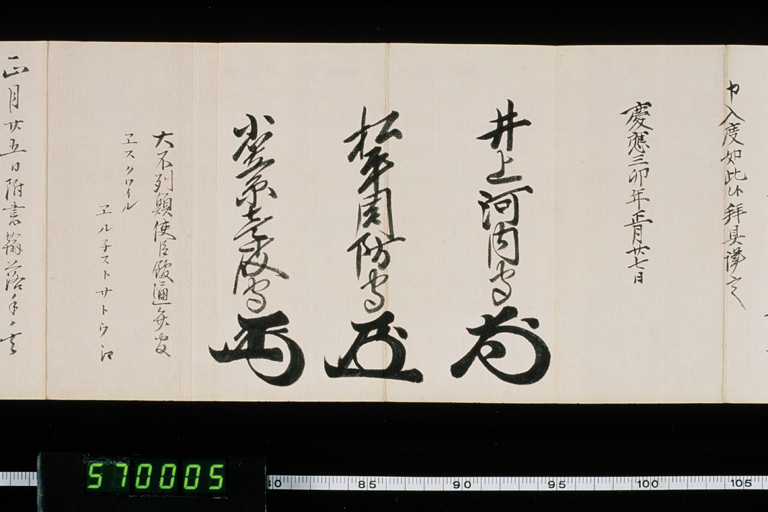 申入度如此候拝具謹言
慶應三卯年正月廿七日
井上河内守
松平周防守
小笠原壱岐守
大不列顛使臣館通弁官
エスクロイル
エルネストサトウ江
正月廿五日附書翰落手
570005
80 85 90 95 100 105